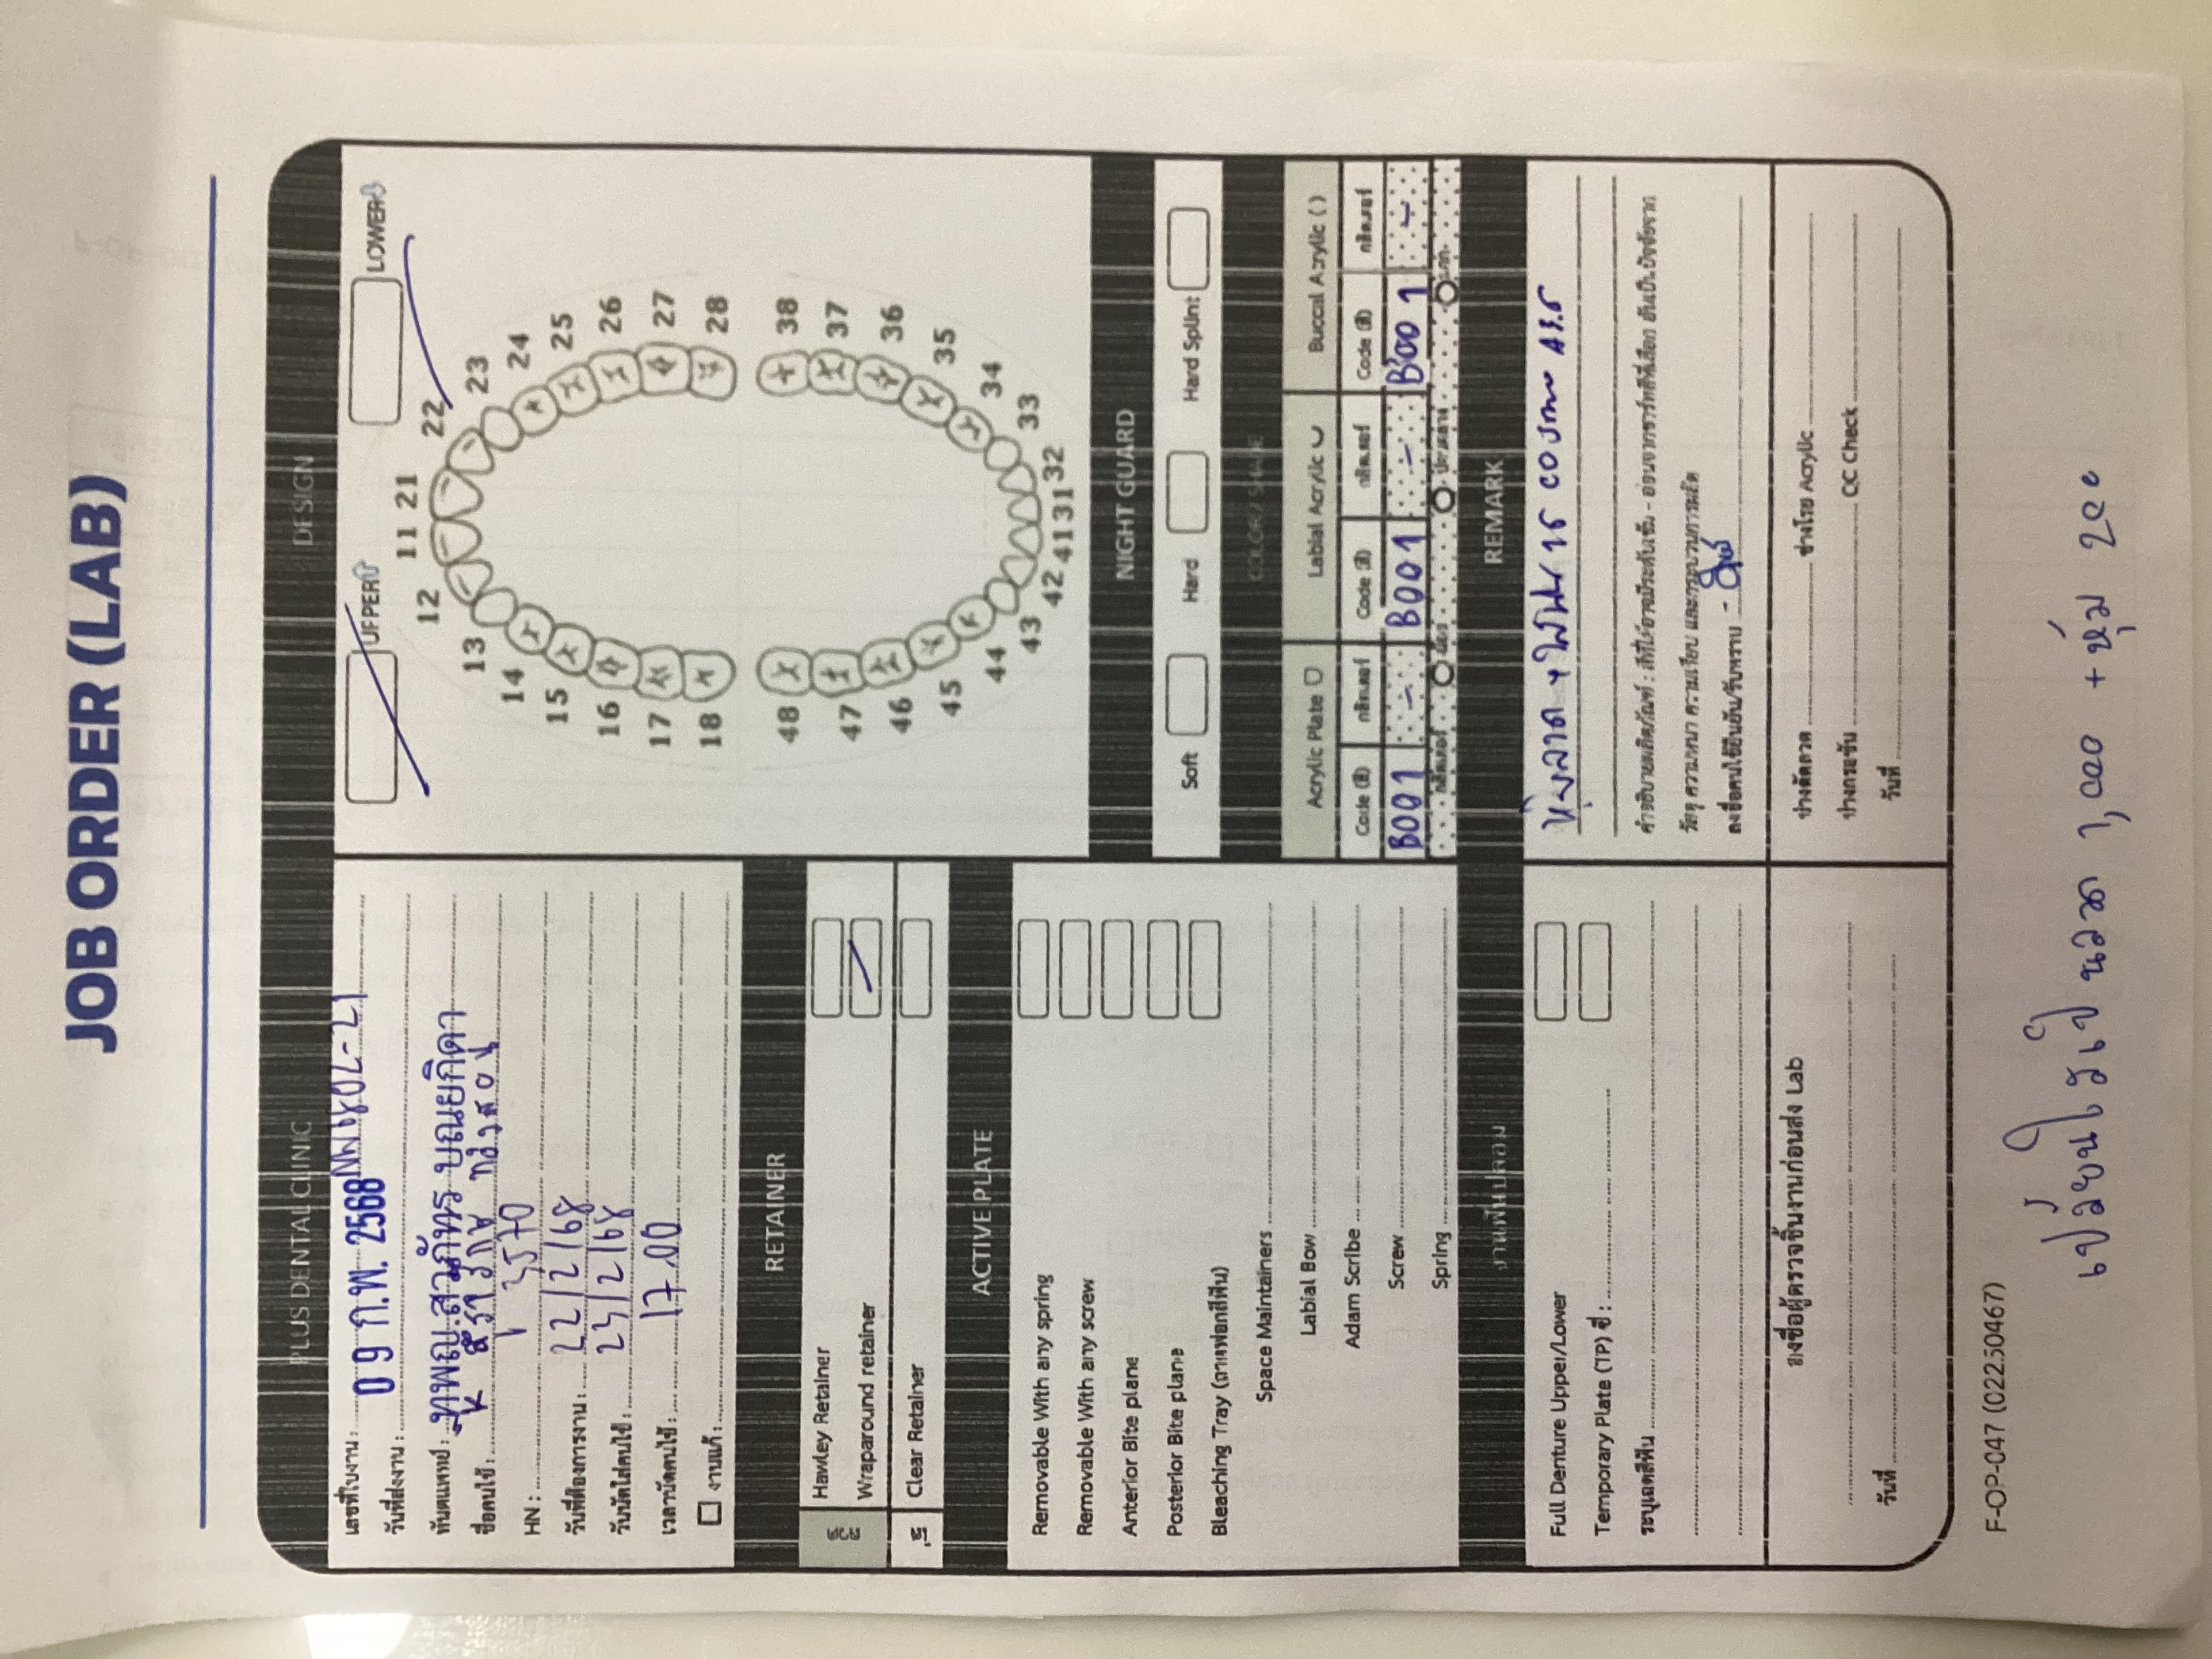 JOB ORDER (LAB)
PLUS DENTAL CLINIC
เลขที่ใบงาน :
วันที่ส่งงาน : 09 ก.พ. 2568
ทันตแพทย์ : ทพญ.สุวภัทร บุณยกิดา
ชื่อคนไข้ :
HN : 3570
วันที่ต้องการงาน : 22/2/68
วันนัดใส่คนไข้ : 23/2/68
เวลานัดคนไข้ : 17.00
งานแก้ :
RETAINER
ลวด
Hawley Retainer
Wraparound retainer
Clear Retainer
ACTIVE PLATE
Removable With any spring
Removable With any screw
Anterior Bite plane
Posterior Bite plane
Bleaching Tray (ถาดฟอกสีฟัน)
Space Maintainers
Labial Bow
Adam Scribe
Screw
Spring
งานฟันปลอม
Full Denture Upper/Lower
Temporary Plate (TP) ซี่ :
ระบุเฉดสีฟัน
ลงชื่อผู้ตรวจชิ้นงานก่อนส่ง Lab
วันที่
DESIGN
UPPER LOWER
11 21
12 22
13 23
14 24
15 25
16 26
17 27
18 28
48 38
47 37
46 36
45 35
44 34
43 33
42 41 31 32
NIGHT GUARD
Soft Hard Hard Splint
COLOR / SHADE
Acrylic Plate Labial Acrylic Buccal Acrylic ( )
Code (สี) กลิตเตอร์ Code (สี) กลิตเตอร์ Code (สี) กลิตเตอร์
B001 - B001 - B001 -
กลิตเตอร์ น้อย ปานกลาง มาก
REMARK
หุ้มลวด + ใส่ฟัน 15 cosmo A3.5
คำอธิบายผลิตภัณฑ์ : สีที่ได้อาจมีระดับเข้ม - อ่อนจากชาร์ทสีที่เลือก อันเป็นปัจจัยจาก
วัสดุ ความหนา ความเรียบ และกระบวนการผลิต
ลงชื่อคนไข้ยืนยัน/รับทราบ
ช่างดัดลวด ช่างโรย Acrylic
ช่างกรอขัด QC Check
วันที่
F-OP-047 (02250467)
เปลี่ยนใสเป็นลวด 1,000 + หุ้ม 200